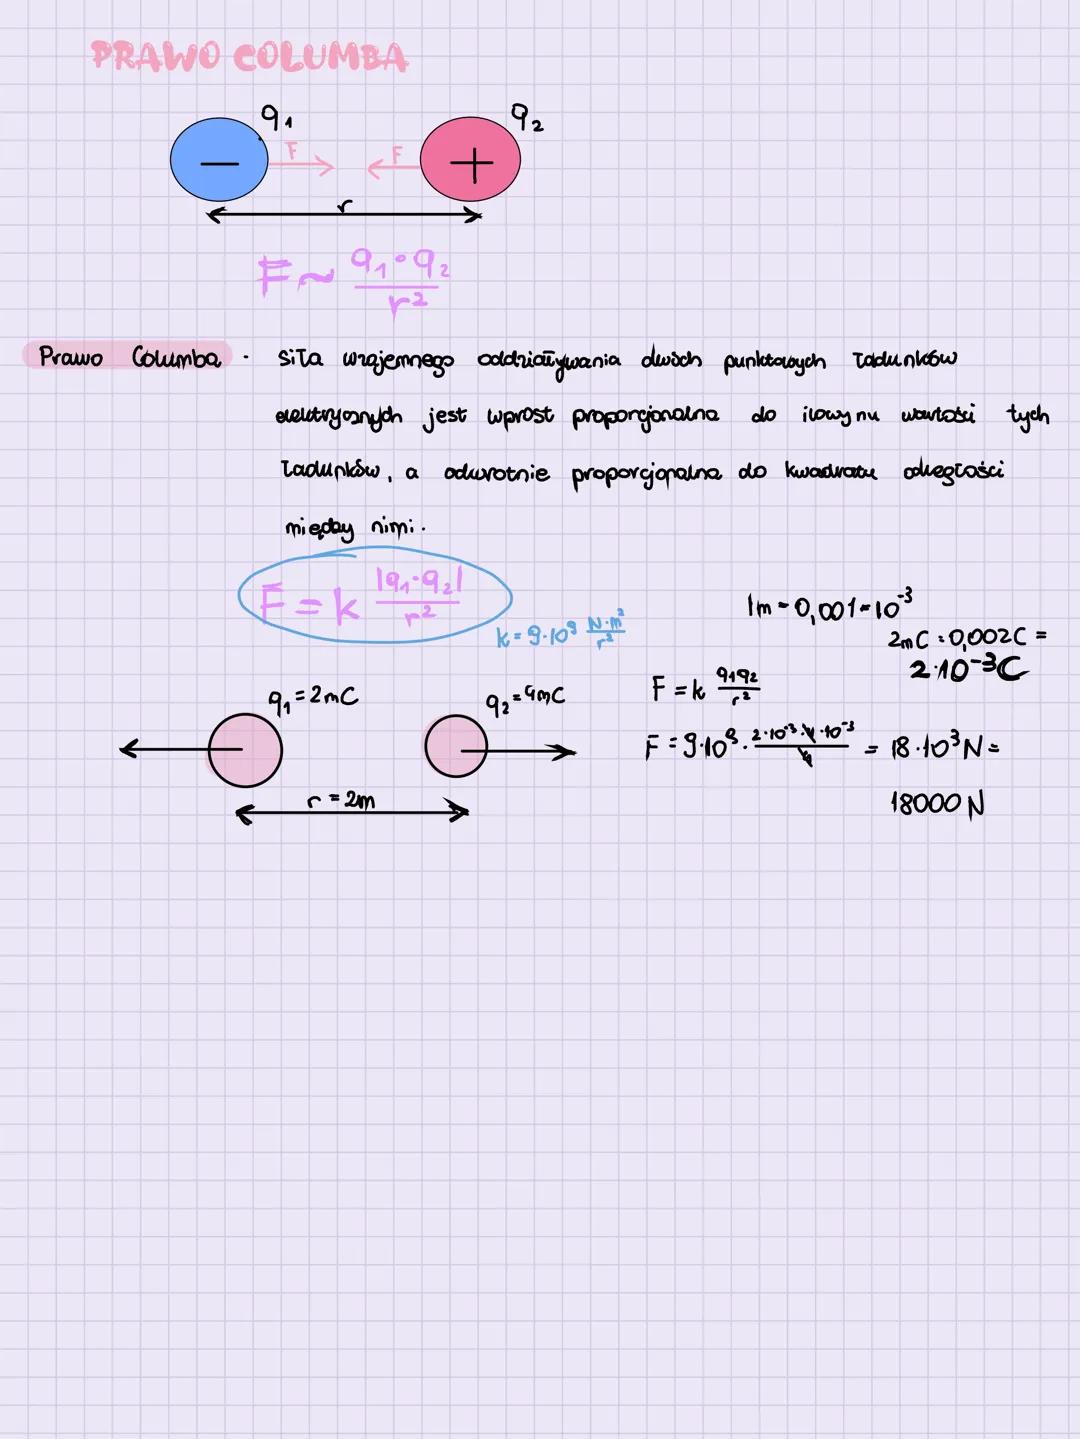 PRAWO COLUMBA
q₁ q₂
F F
r
F ~ q₁·q₂ / r²
Prawo Columba · siła wzajemnego oddziaływania dwóch punktowych ładunków
elektrycznych jest wprost proporcjonalna do iloczynu wartości tych
ładunków, a odwrotnie proporcjonalna do kwadratu odległości
między nimi.
F = k |q₁·q₂| / r²
k = 9·10⁹ N·m² / r²
1m = 0,001 = 10⁻³
2mC = 0,002C =
2·10⁻³C
q₁ = 2mC q₂ = 4mC
r = 2m
F = k q₁q₂ / r²
F = 9·10⁹ · 2·10⁻³·4·10⁻³ / 4 = 18·10³ N =
18000 N